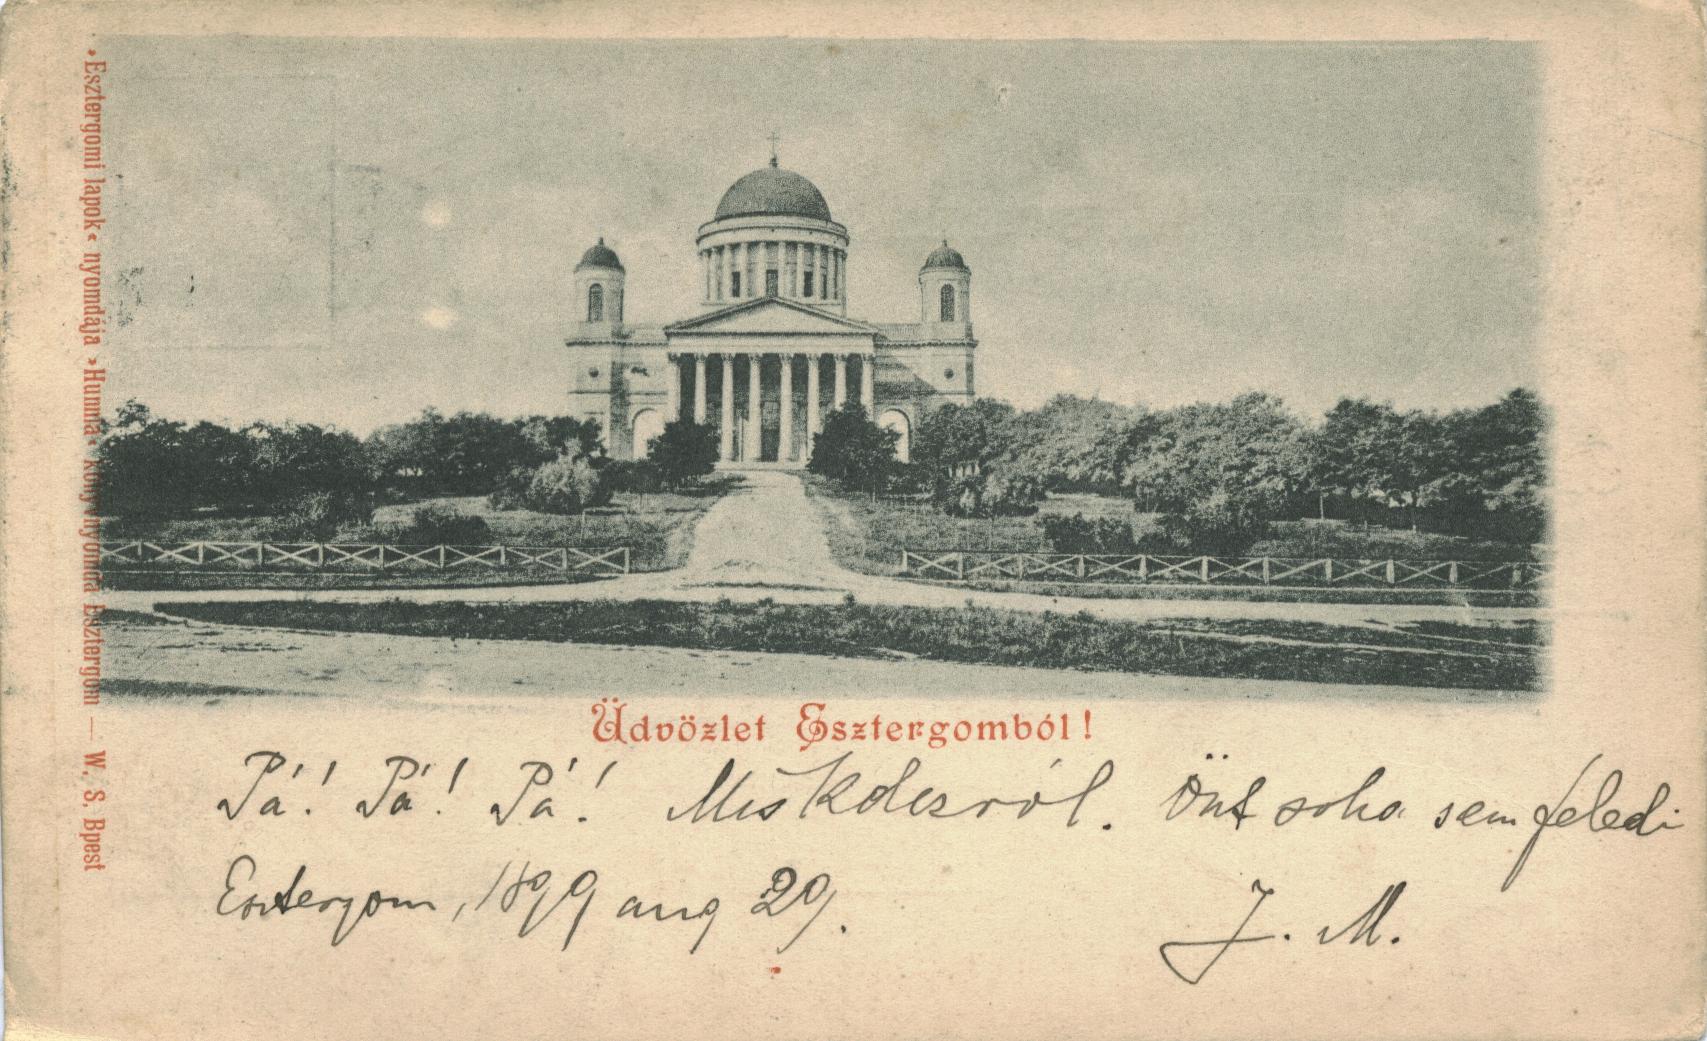 »Esztergomi lapok« nyomdája »Hunnia« könyvnyomda Esztergom — W. S. Bpest
Üdvözlet Esztergomból!
Pá! Pá! Pá! Miskolczról. Önt soha sem feledi
Esztergom, 1899 aug 29.
J. M.